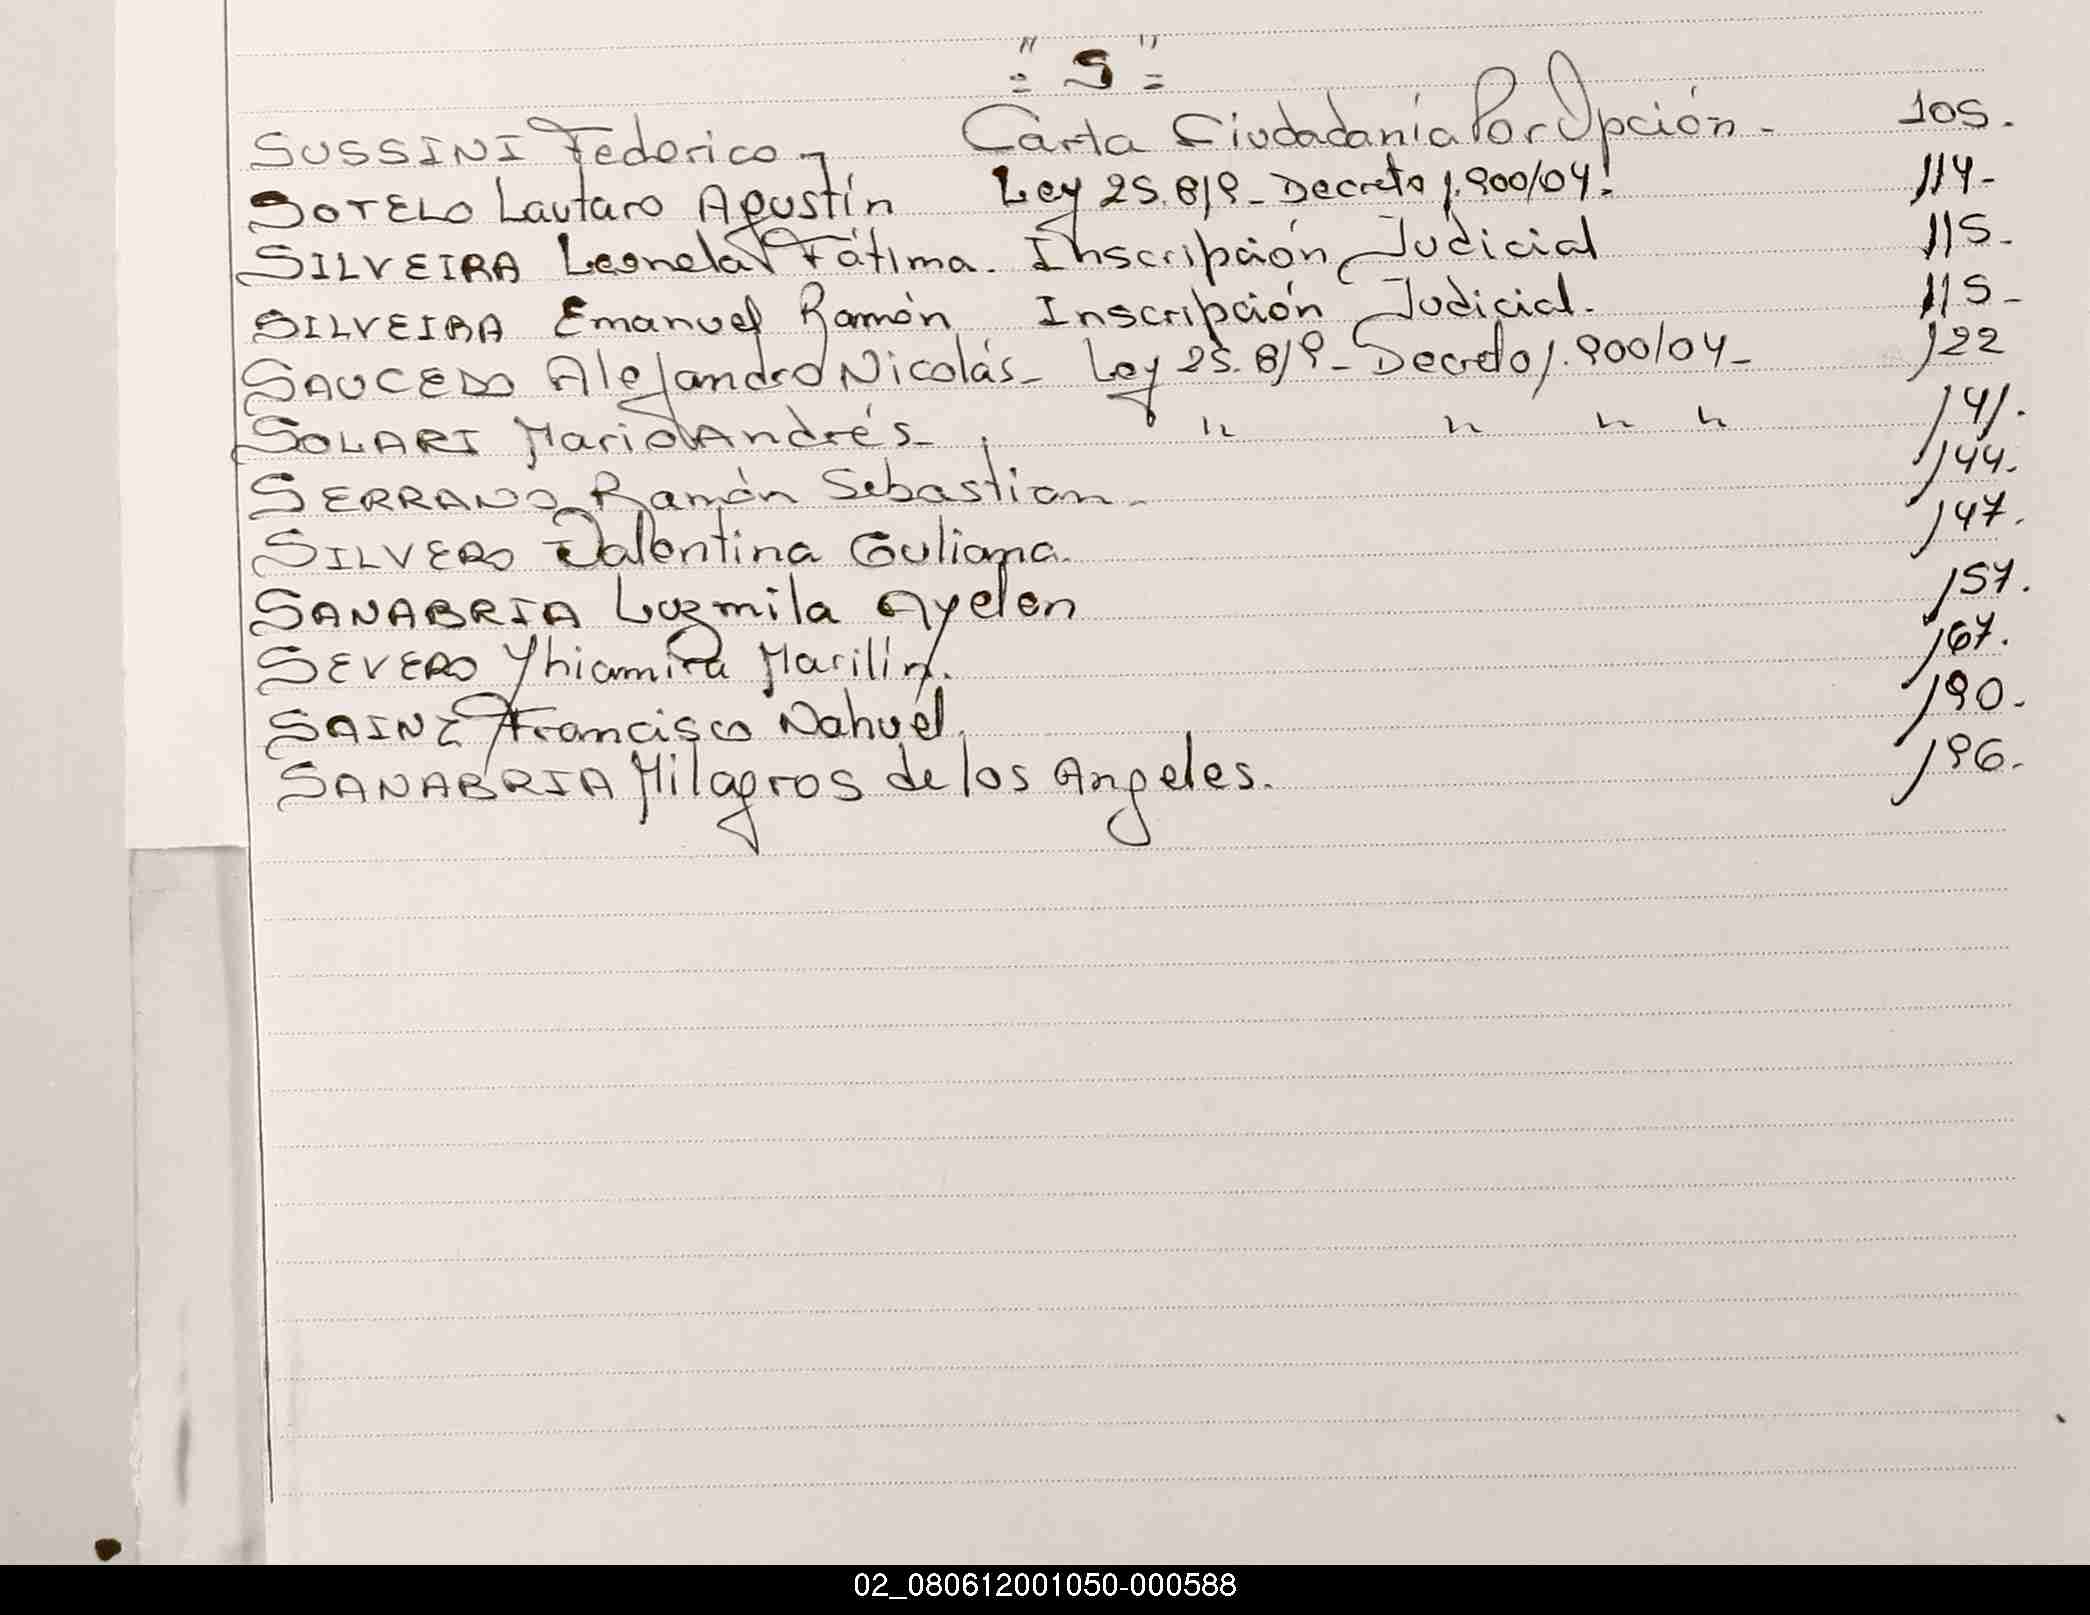 = " S " =
SUSSINI Federico - Carta Ciudadanía Por Opción - 105.
SOTELO Lautaro Agustín Ley 25.819 - Decreto 1.900/04. 114-
SILVEIRA Leonela Fátima. Inscripción Judicial 115-
SILVEIRA Emanuel Ramón Inscripción Judicial. 115-
SAUCEDO Alejandro Nicolás - Ley 25.819 - Decreto 1.900/04 - 122
SOLARI Mario Andrés - " " " " 141.
SERRANO Ramón Sebastian - 144.
SILVERO Valentina Guliana. 147.
SANABRIA Luzmila Ayelen 157.
SEVERO Yhiamira Marilín. 167.
SAINZ Francisco Nahuel. 190-
SANABRIA Milagros de los Angeles. 196.
02_080612001050-000588